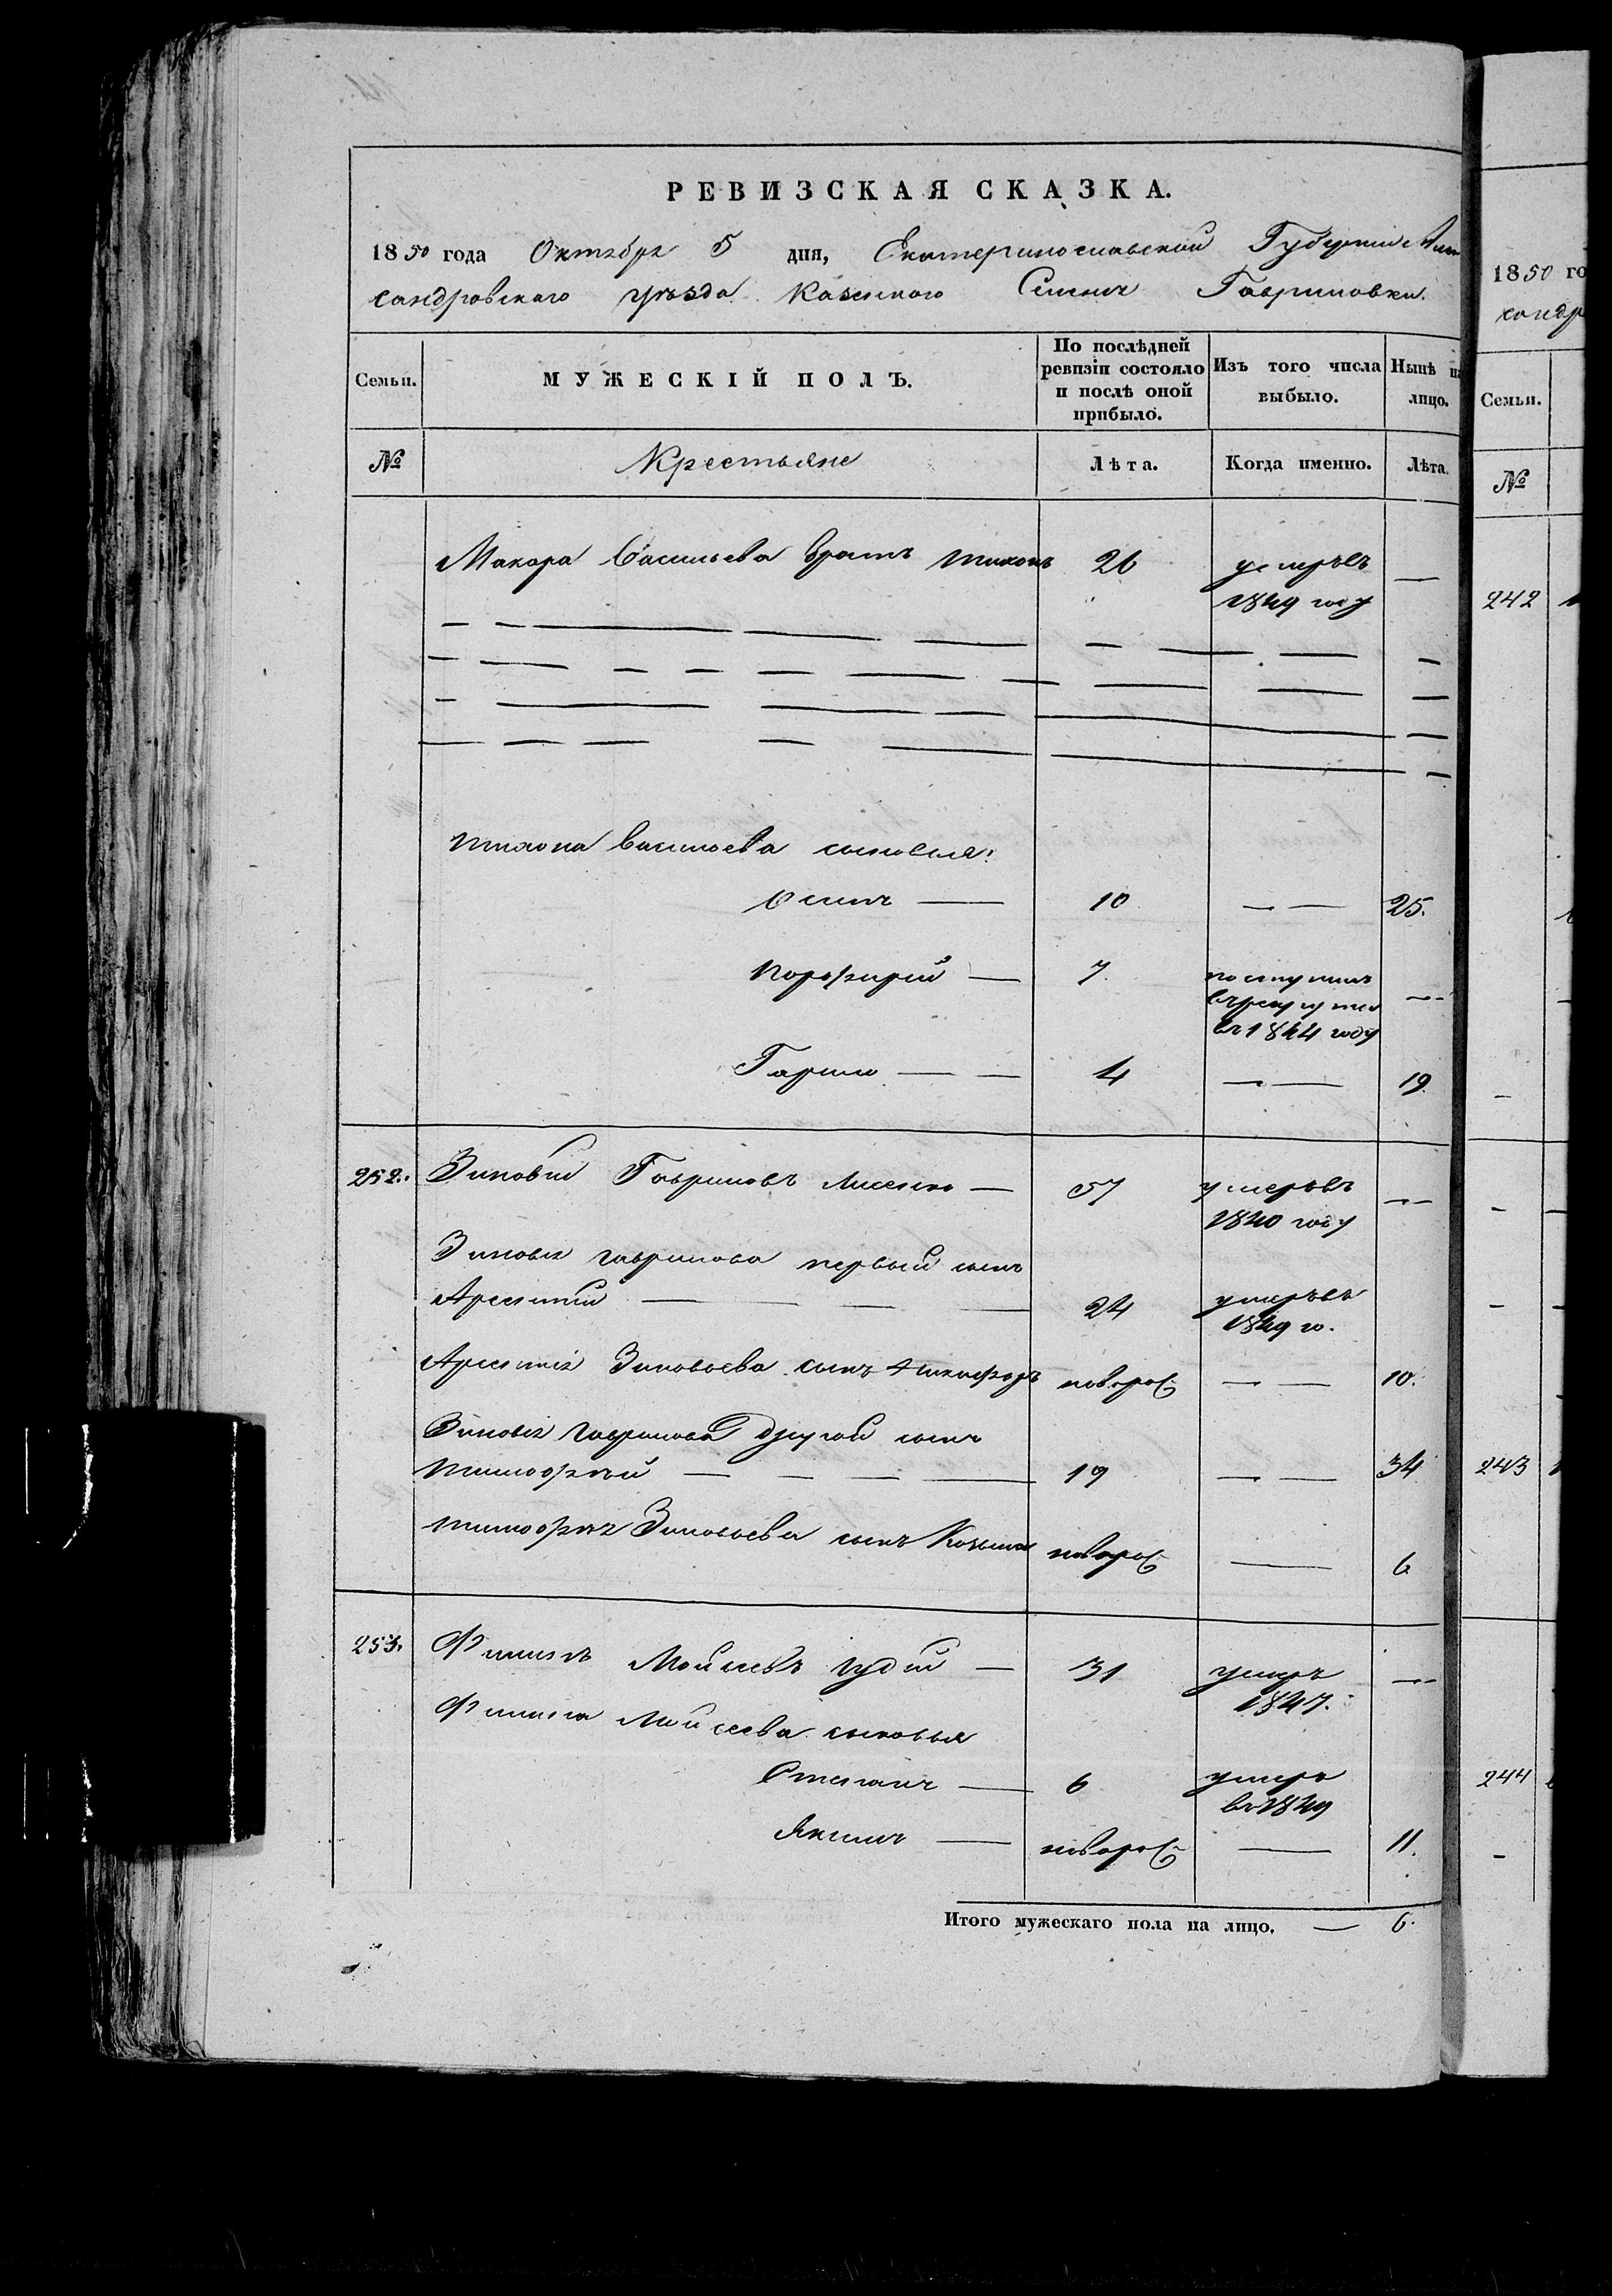 РЕВИЗСКАЯ СКАЗКА.
1850 года Октября 5 дня, Екатеринославской Губернии Алек
сандровскаго уѣзда Казенного Селенія Гавриловки.
Семьи. МУЖЕСКІЙ ПОЛЪ. По послѣдней ревизіи состояло и послѣ оной прибыло. Изъ того числа выбыло. Нынѣ на лицо.
№ Крестьяне Лѣта. Когда именно. Лѣта.
Макара Васильева братъ Тихонъ 26 умерѣвъ —
1849 году
Тихона Васильева сыновья:
Осипъ — 10 — — 25.
Порфирій — 7. поступилъ —
въ рекруты
въ 1844 году
— — 4 — — 19.
252. Зиновій Гавриловъ Лисенко — 57 умерѣвъ —
1840 году
Зиновія Гаврилова первый сынъ
Арсентій — — — 24 умерѣвъ
1849 го.
Арсентія Зиновьева сынъ Никифоръ новорож — — 10.
Зиновія Гаврилова другой сынъ
Тимофѣй — — — — 19 — — 34
Тимофѣя Зиновьева сынъ Козьма новорож — 6
253. Филипъ Мойсеевъ Гудій — 31 умеръ —
1847.
Филипа Мойсеева сыновья
Степанъ — 6 умеръ
въ 1849
Якимъ — новорож — 11.
Итого мужескаго пола на лицо. — 6.
1850 го
сандр
Семьи.
№
242
243
244